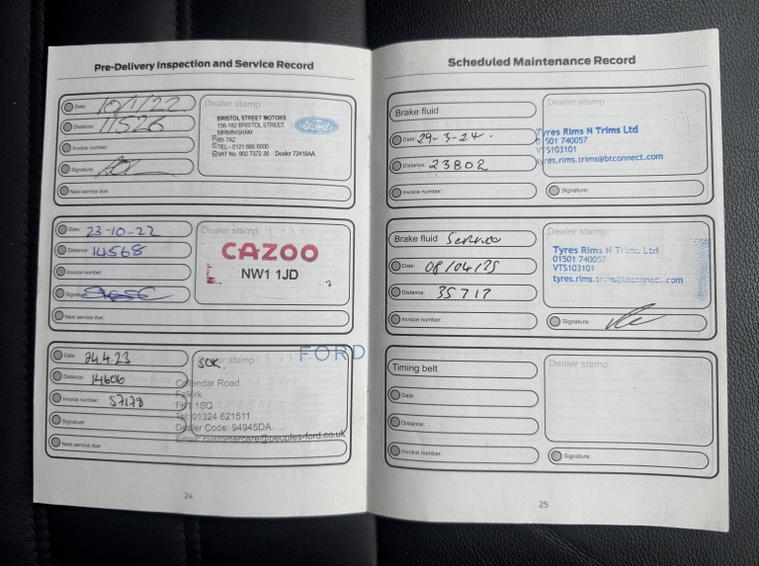 Pre-Delivery Inspection and Service Record
Date: 10/1/22
Distance: 11526
Invoice number:
Signature:
Next service due:
Dealer stamp
BRISTOL STREET MOTORS
156-182 BRISTOL STREET
BIRMINGHAM
B5 7AZ
TEL - 0121 666 6000
VAT No. 902 7372 38 Dealer 72418AA
Ford
Date: 23-10-22
Distance: 14568
Invoice number:
Signature:
Next service due:
Dealer stamp
CAZOO
NW1 1JD
Date: 24.4.23
Distance: 14606
Invoice number: 57178
Signature:
Next service due:
Dealer stamp
FORD
Callendar Road
Falkirk
FK1 1SQ
Tel: 01324 621511
Dealer Code: 94945DA
Email: customercare@peoples-ford.co.uk
24
Scheduled Maintenance Record
Brake fluid
Date: 29-3-24.
Distance: 23802
Invoice number:
Dealer stamp
Tyres Rims N Trims Ltd
01501 740057
VTS103101
tyres.rims.trims@btconnect.com
Signature:
Brake fluid Service
Date: 08/04/25
Distance: 35717
Invoice number:
Dealer stamp
Tyres Rims N Trims Ltd
01501 740057
VTS103101
tyres.rims.trims@btconnect.com
Signature:
Timing belt
Date:
Distance:
Invoice number:
Dealer stamp
Signature:
25